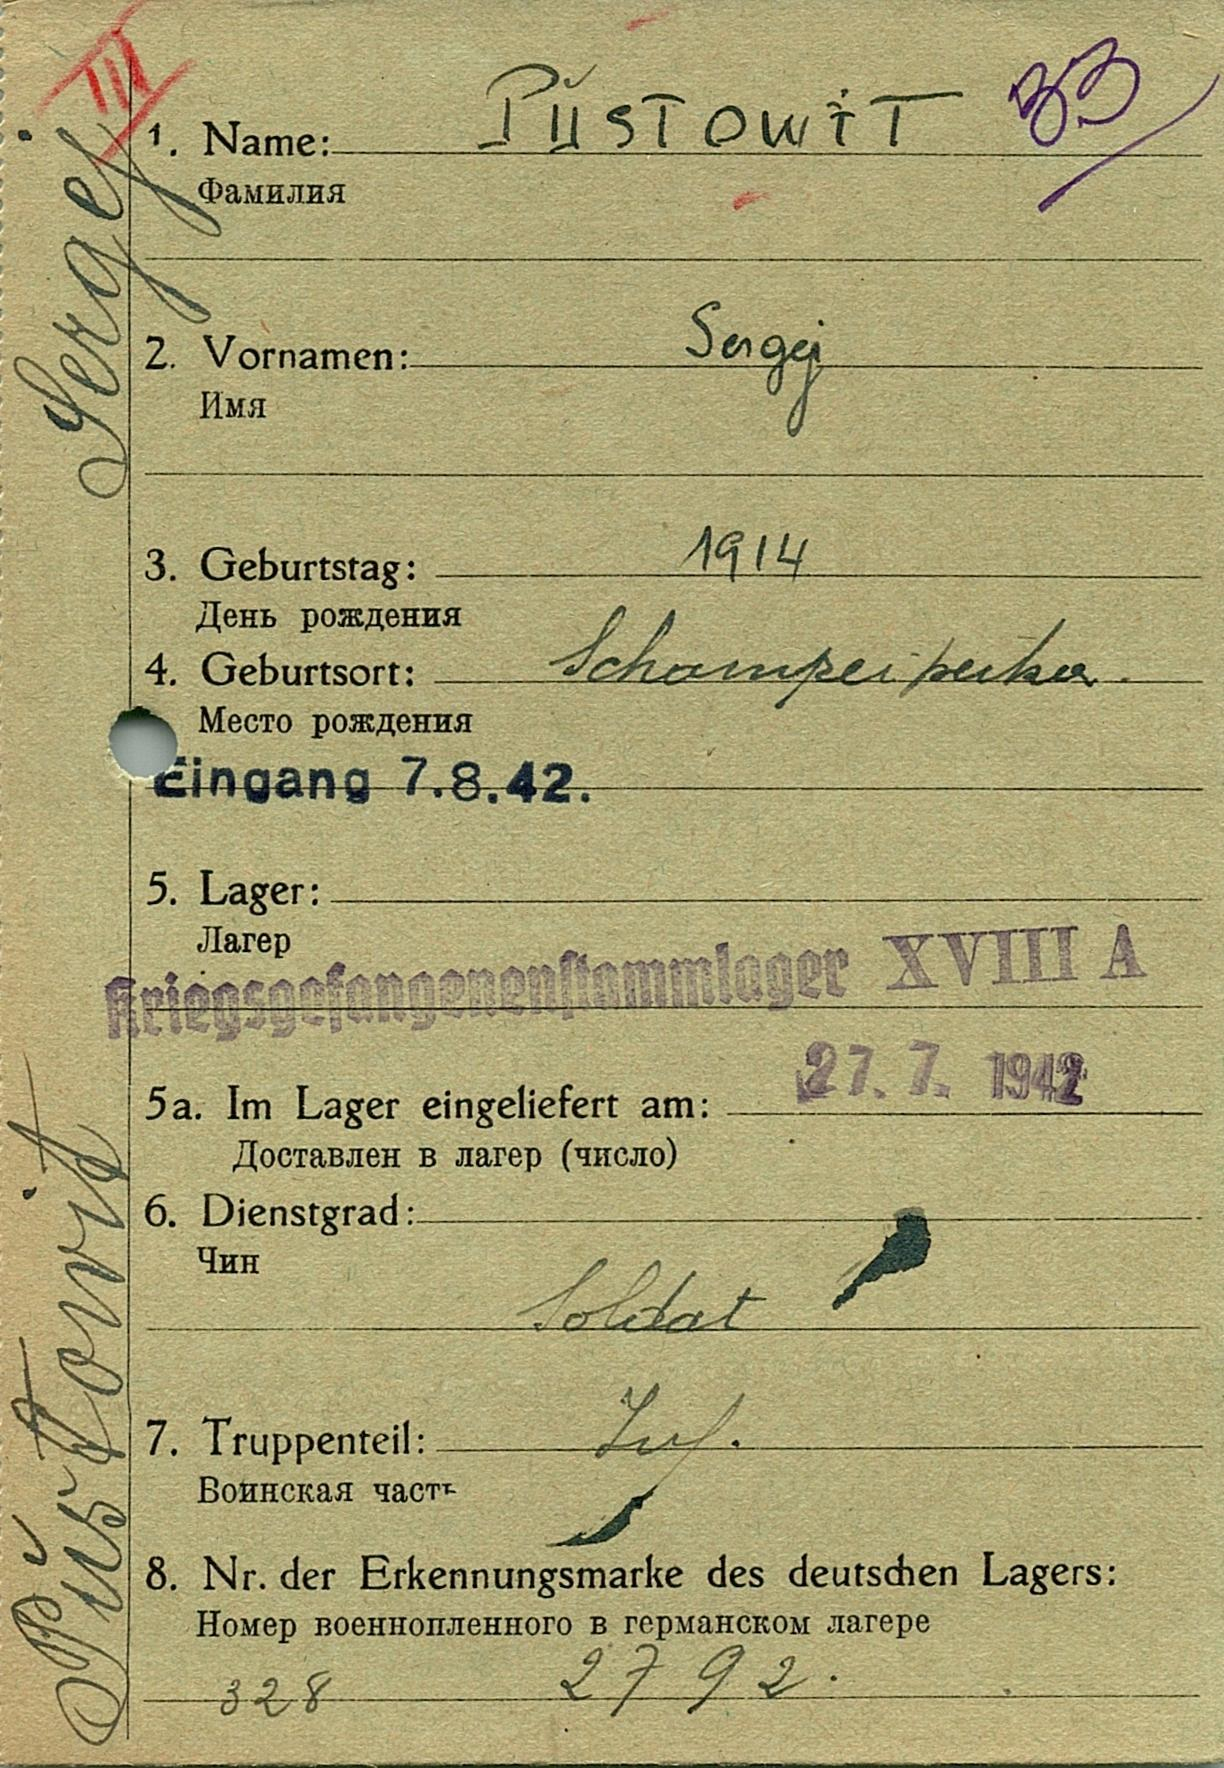 III
33
1. Name: PŬSTOWIT
Фамилия
2. Vornamen: Sergej
Имя
3. Geburtstag: 1914
День рождения
4. Geburtsort:
Место рождения
Eingang 7.8.42.
5. Lager:
Лагер
Kriegsgefangenenstammlager XVIII A
27. 7. 1942
5a. Im Lager eingeliefert am:
Доставлен в лагер (число)
6. Dienstgrad:
Чин
Soldat
7. Truppenteil: Inf.
Воинская часть
8. Nr. der Erkennungsmarke des deutschen Lagers:
Номер военнопленного в германском лагере
328 2792.
Pŭstovit Sergej